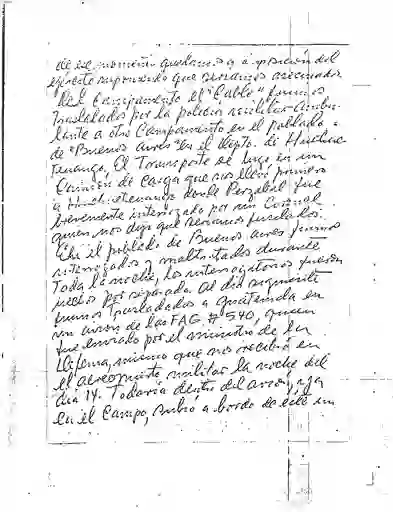 de ese momento quedamos a disposición del
ejército suponiendo que seríamos asesinados
Del Campamento el "Cable" fuimos
Trasladados por la policía militar Ambu-
lante a otro Campamento en el poblado
de "Buenos Aires" en el depto. de Huehue-
tenango, El Transporte se hizo en un
Camión de Carga que nos llevó primero
a Huehuetenango donde Perzabal fue
brevemente interrogado por un Coronel
quien nos dijo que seríamos fusilados.
En el poblado de Buenos Aires fuimos
interrogados y maltratados durante
Toda la noche, los interrogatorios fueron
hechos por separado. Al día siguiente
fuimos Trasladados a guatemala en
un avion de las FAG # 540, quien
fue enviado por el ministro de la
Defensa, mismo que nos recibió en
el aereopuerto militar la noche del
día 14. Todavía dentro del avion, y ya
en el Campo, subió a bordo de éste un